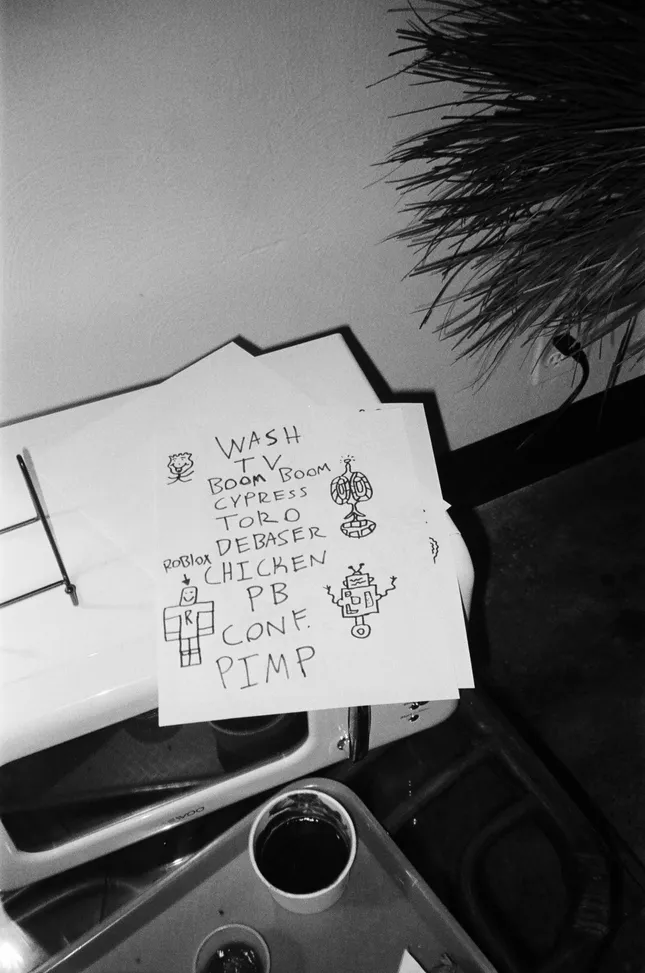 WASH
TV
BOOM BOOM
CYPRESS
TORO
DEBASER
ROBLOX
CHICKEN
PB
R
CONF.
PIMP